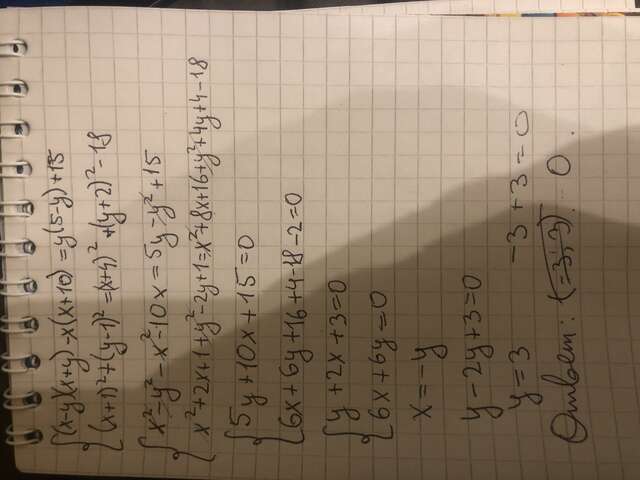 {(x-y)(x+y)-x(x+10)=y(5-y)+15
(x+1)²+(y-1)²=(x+4)²+(y+2)²-18
{x²-y²-x²-10x=5y-y²+15
x²+2x+1+y²-2y+1=x²+8x+16+y²+4y+4-18
{5y+10x+15=0
6x+6y+16+4-18-2=0
{y+2x+3=0
6x+6y=0
x=-y
y-2y+3=0
y=3 -3+3=0
Ответ: (-3;3) - 0.